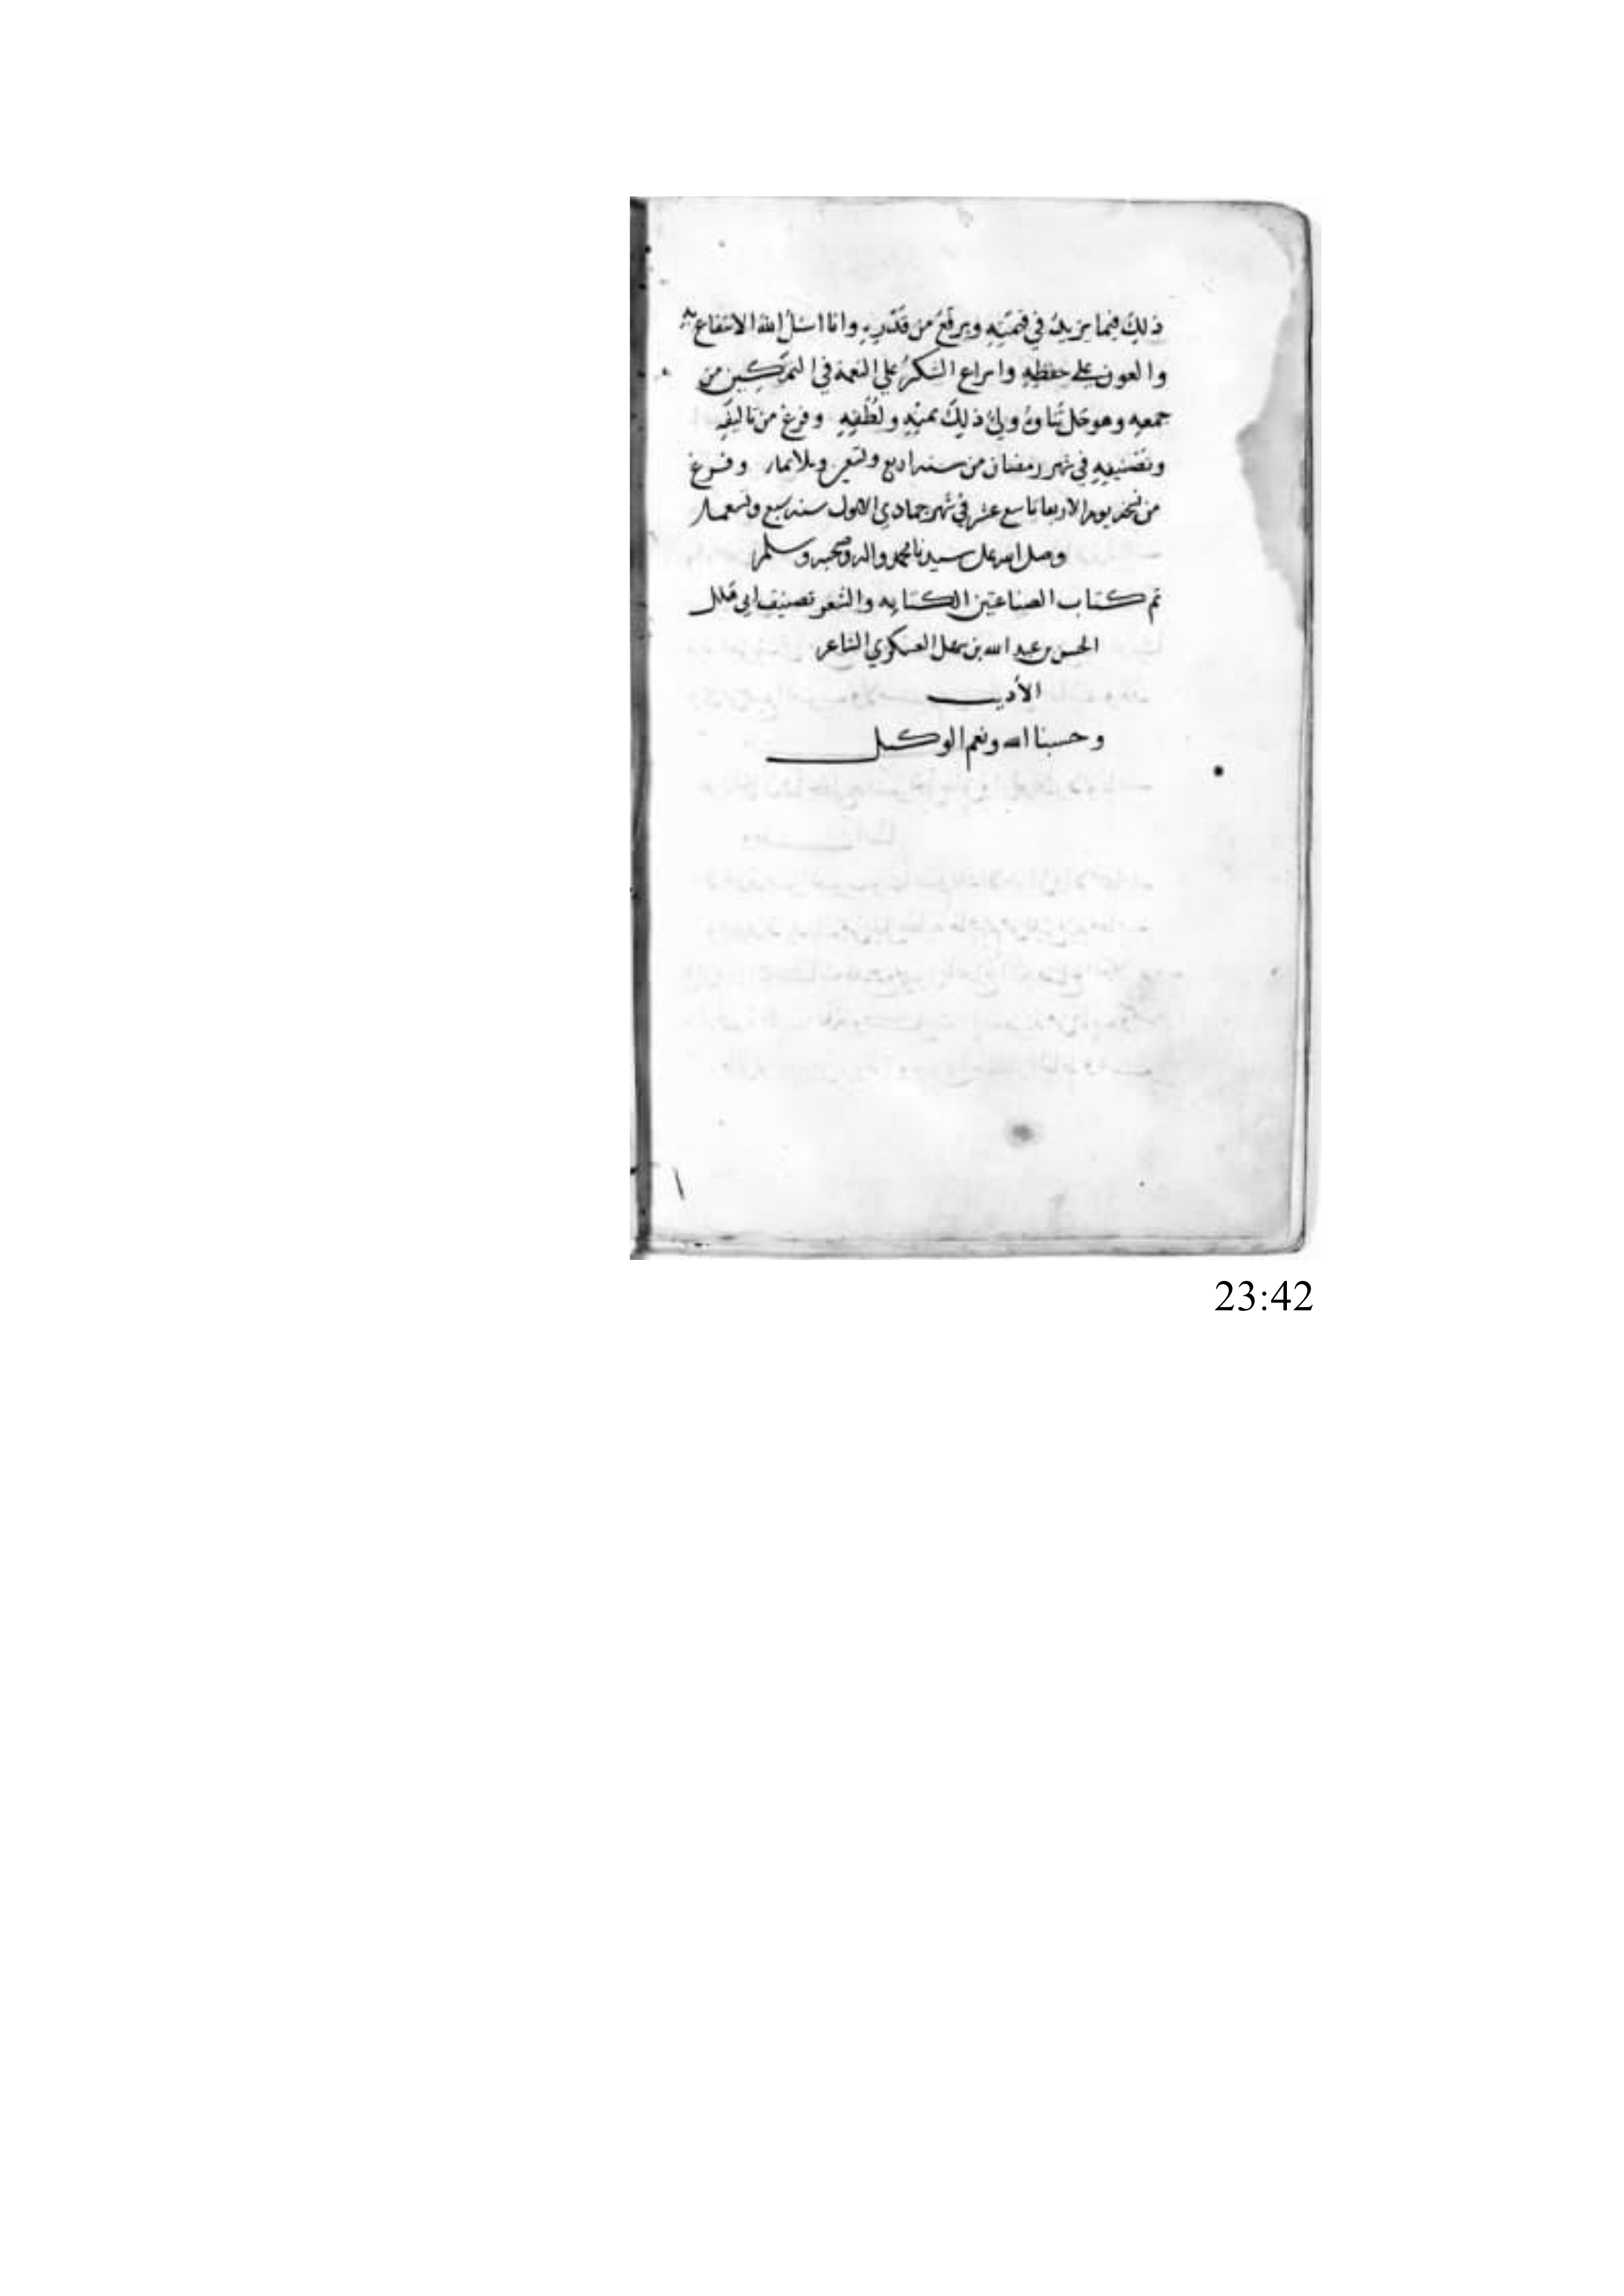 ذلك فيما يزيد في قيمته ويرفع من قدره وانا اسئل الله الانتفاع به
والعون على حفظه وايزاع الشكر علي النعمة في التمكين من
جمعه وهو جل ثناوه ولي ذلك بمنه ولطفه وفرغ من تاليفه
وتصنيفه في شهر رمضان من سنه اربع وتسعين وثلاثمايه وفرغ
من يوم الاربعا تاسع عشر في شهر جمادي الاول سنه سبع
وصلى الله على سيدنا محمد واله وصحبه وسلم
تم كتاب الصناعتين الكتابه والشعر تصنيف ابي هلال
الحسن بن عبد الله بن سهل العسكري الشاعر
الأديب
وحسبنا الله ونعم الوكيل
23:42